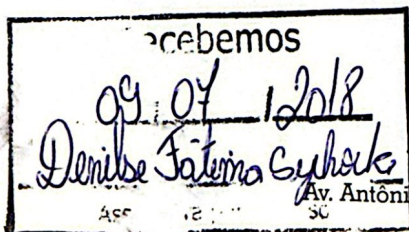 ecebemos
09 07 2018
Denilse Fátima
Av. Antôni